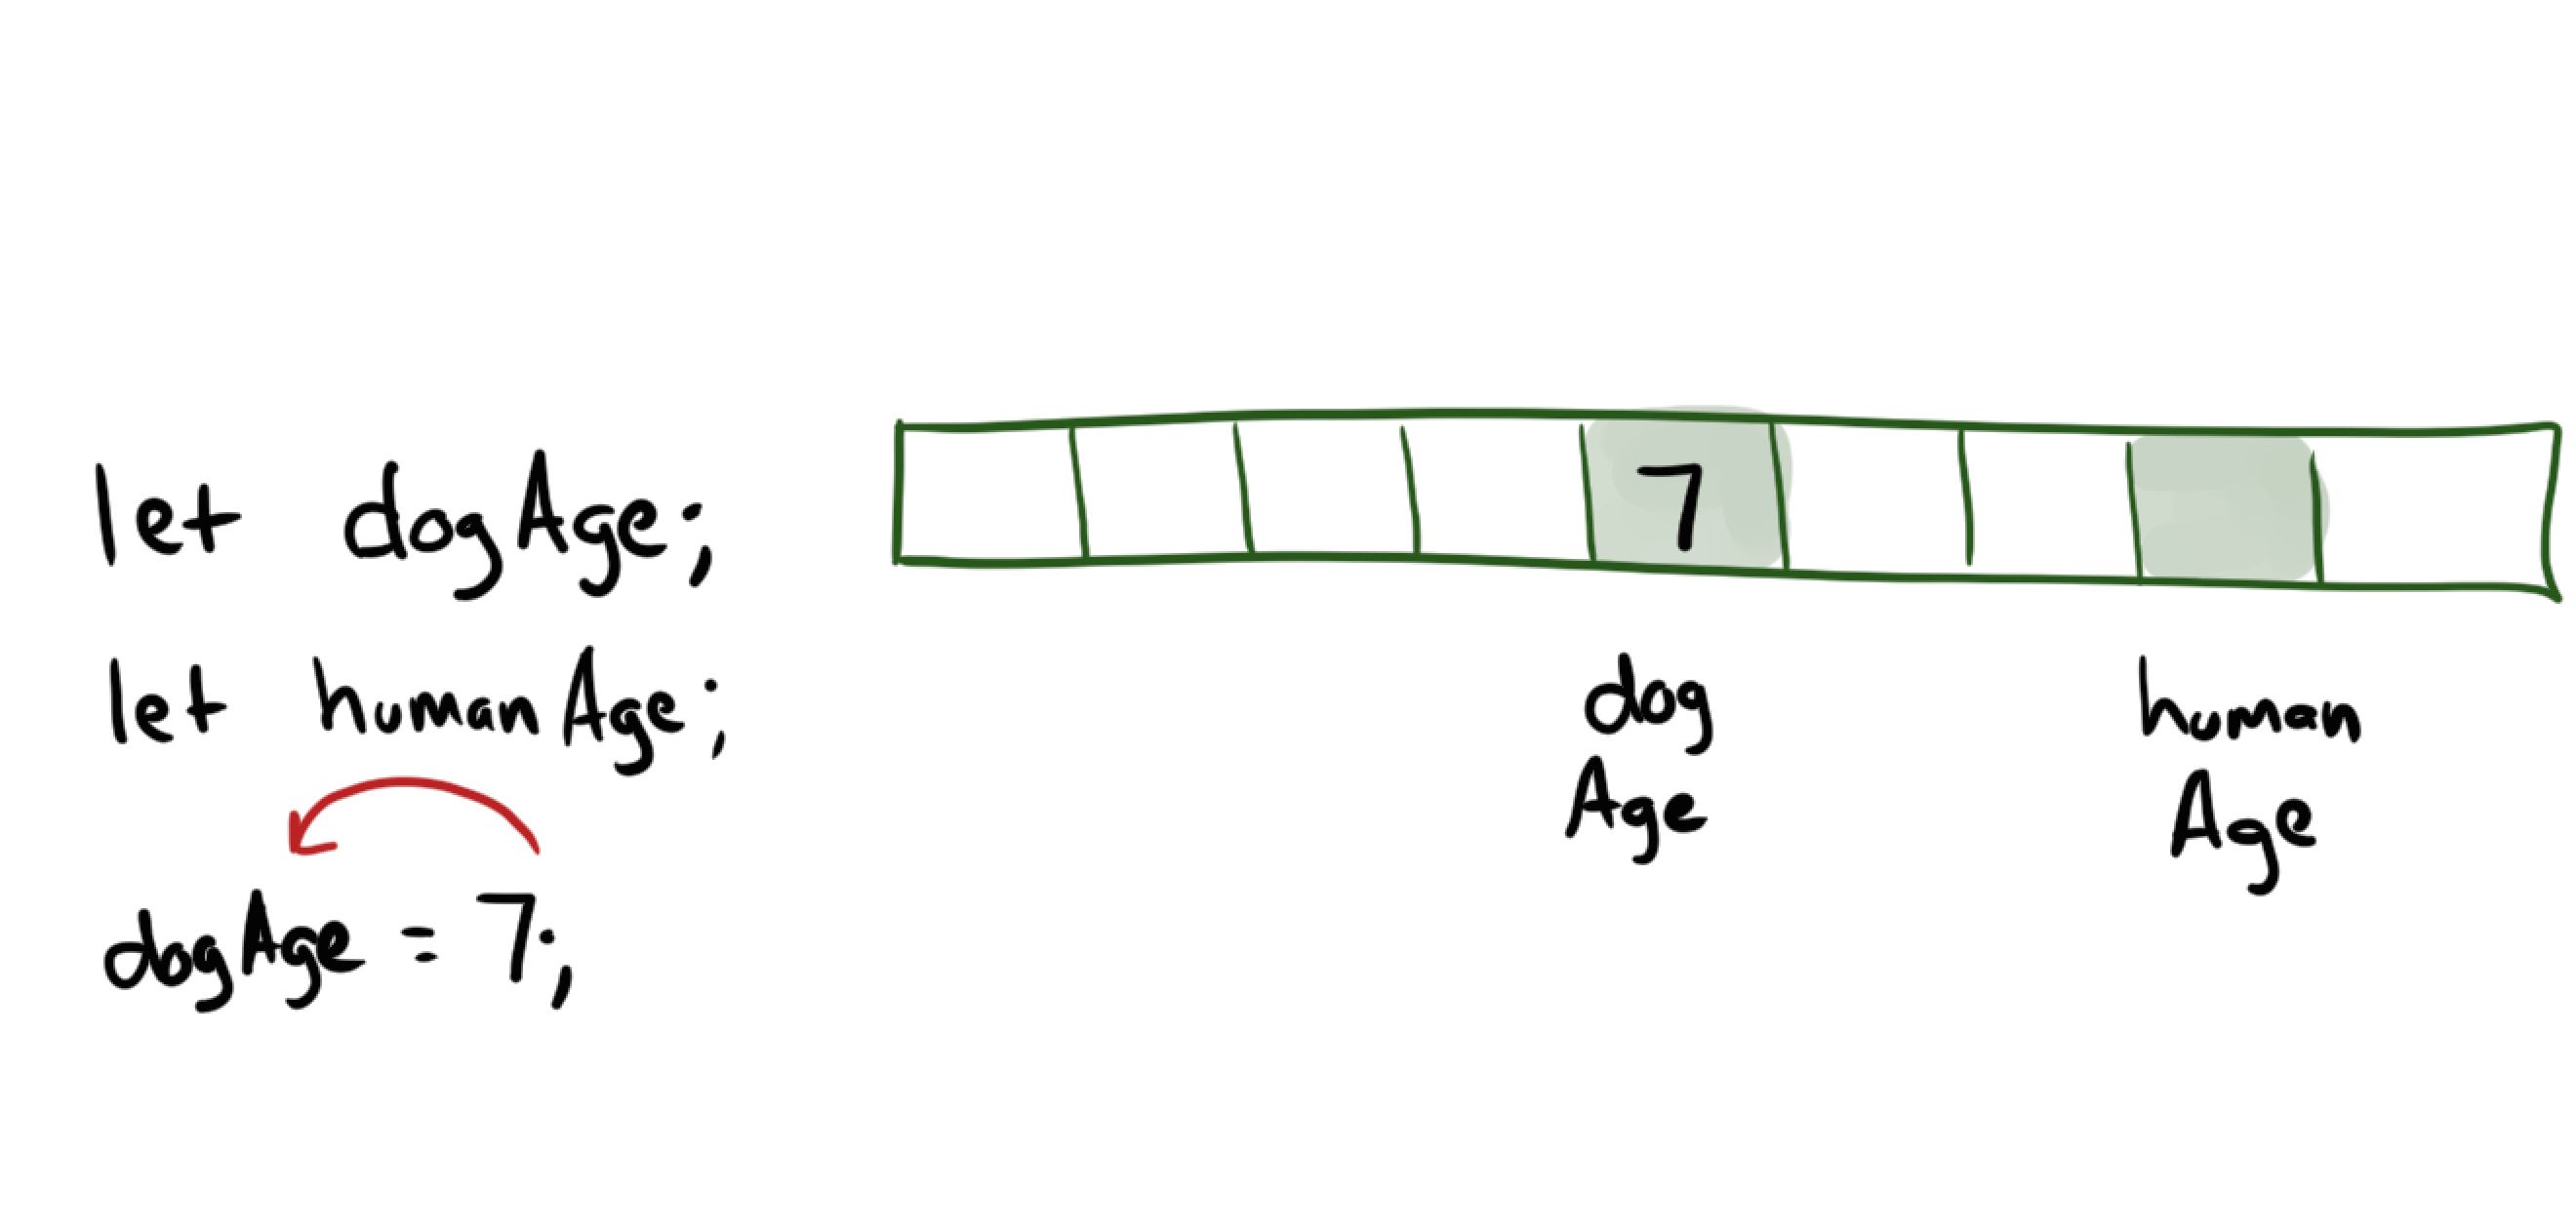 let dogAge;
let humanAge;
dogAge = 7;
7
dog
Age
human
Age